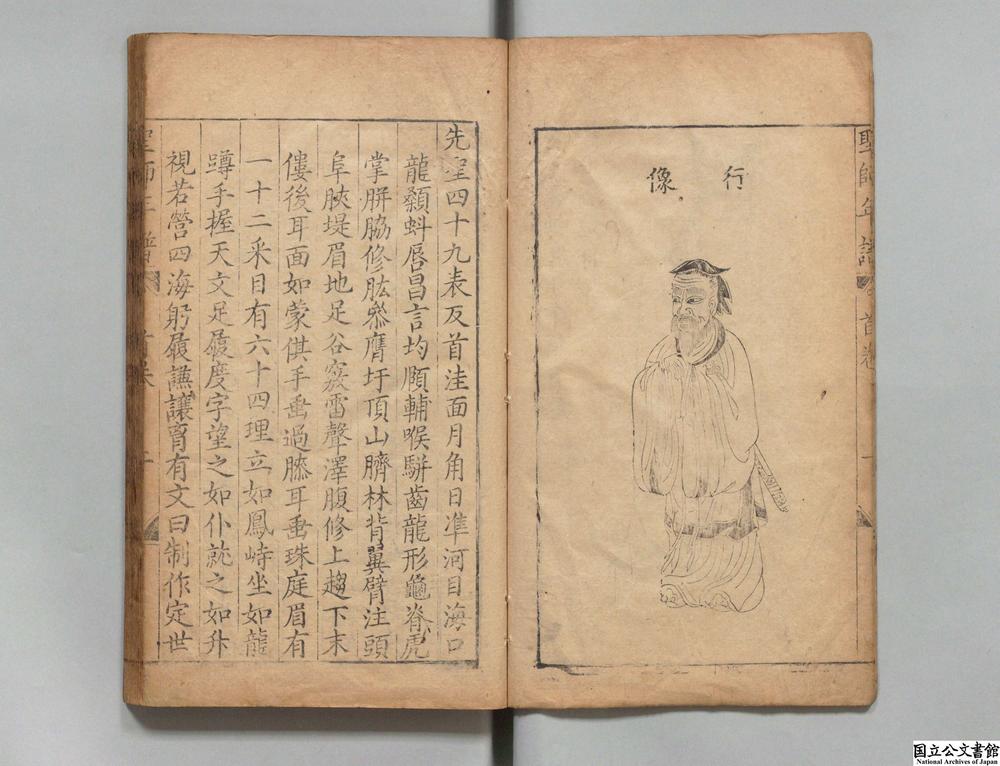 聖師年譜 首卷 一
行像
先聖四十九表反首洼面月角日準河目海口
龍顙蚪唇昌言均頤輔喉駢齒龍形龜脊虎
掌胼脇修肱叅膺圩頂山臍林背翼臂注頭
阜脥堤眉地足谷竅雷聲澤腹修上趨下末
僂後耳面如蒙倛手垂過膝耳垂珠庭眉有
一十二采目有六十四理立如鳳峙坐如龍
蹲手握天文足履度字望之如仆就之如升
視若營四海躬履謙讓胷有文曰制作定世
聖師年譜 首卷
国立公文書館
National Archives of Japan